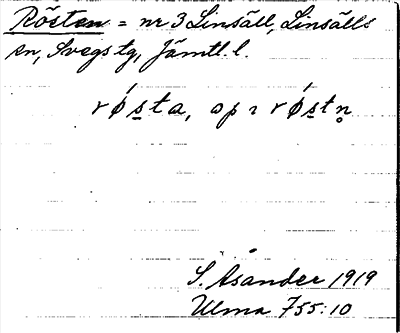 Rösten = nr 3 Linsäll, Linsälls
sn, Svegs tg, Jämtl. l.
rǿs̲ta, op ı rǿs̲tn̥
S. Åsander 1919
Ulma 755:10